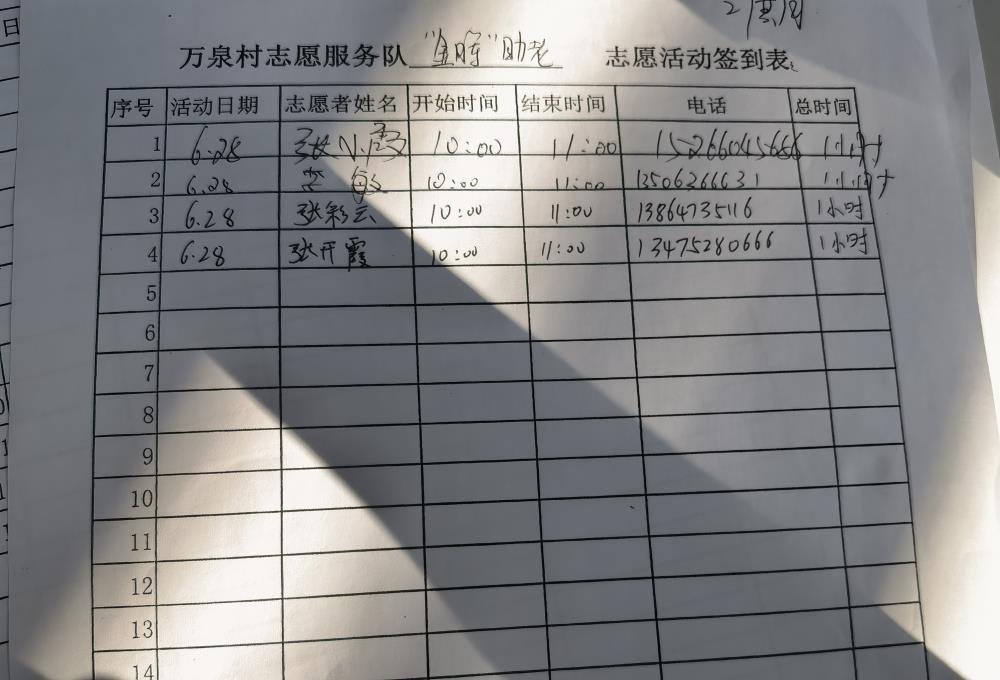 万泉村志愿服务队 "金晖"助老 志愿活动签到表
序号 活动日期 志愿者姓名 开始时间 结束时间 电话 总时间
1 6.28 张小霞 10:00 11:00 15266045666 1小时
2 6.28 李敏 10:00 11:00 13506366631 1小时
3 6.28 张彩云 10:00 11:00 13864735116 1小时
4 6.28 张开霞 10:00 11:00 13475280666 1小时
5
6
7
8
9
10
11
12
13
14